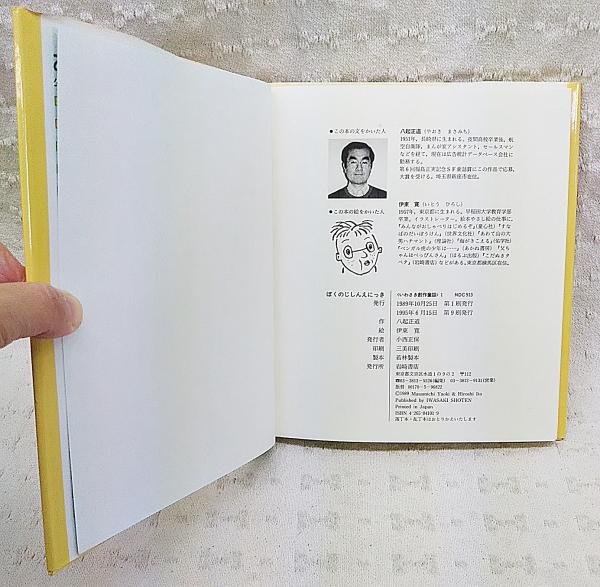 ●この本の文をかいた人
八起正道(やおき まさみち)
1951年、長崎県に生まれる。夜間高校卒業後、航
空自衛隊、まんが家アシスタント、セールスマン
などを経て、現在は広告統計データベース会社に
勤務する。
第6回福島正実記念SF童話賞にこの作品で応募、
大賞を受ける。埼玉県新座市在住。
●この本の絵をかいた人
伊東 寛(いとう ひろし)
1957年、東京都に生まれる。早稲田大学教育学部
卒業。イラストレーター。絵本やさし絵の仕事に、
『みんながおしゃべりはじめるぞ』(童心社)『すな
ばのだいぼうけん』(世界文化社)『あわて山の大
男ハナマント』(理論社)『海がきこえる』(佑学社)
『ベンガル虎の少年は……』(あかね書房)『父ち
ゃんはべっぴんさん』(はるぶ出版)『こだぬきタ
ベタ』(岩崎書店)などがある。東京都練馬区在住。
ぼくのじしんえにっき 〈いわさき創作童話〉1 NDC913
発行 1989年10月25日 第1刷発行
1995年6月15日 第9刷発行
作 八起正道
絵 伊東 寛
発行者 小西正保
印刷 三美印刷
製本 若林製本
発行所 岩崎書店
東京都文京区水道1の9の2 〒112
☎03-3813-5526(編集) 03-3812-9131(営業)
振替 00170-5-96822
©1989 Masamichi Yaoki & Hiroshi Ito
Published by IWASAKI SHOTEN
Printed in Japan
ISBN 4-265-04101-9
落丁本・乱丁本はおとりかえいたします